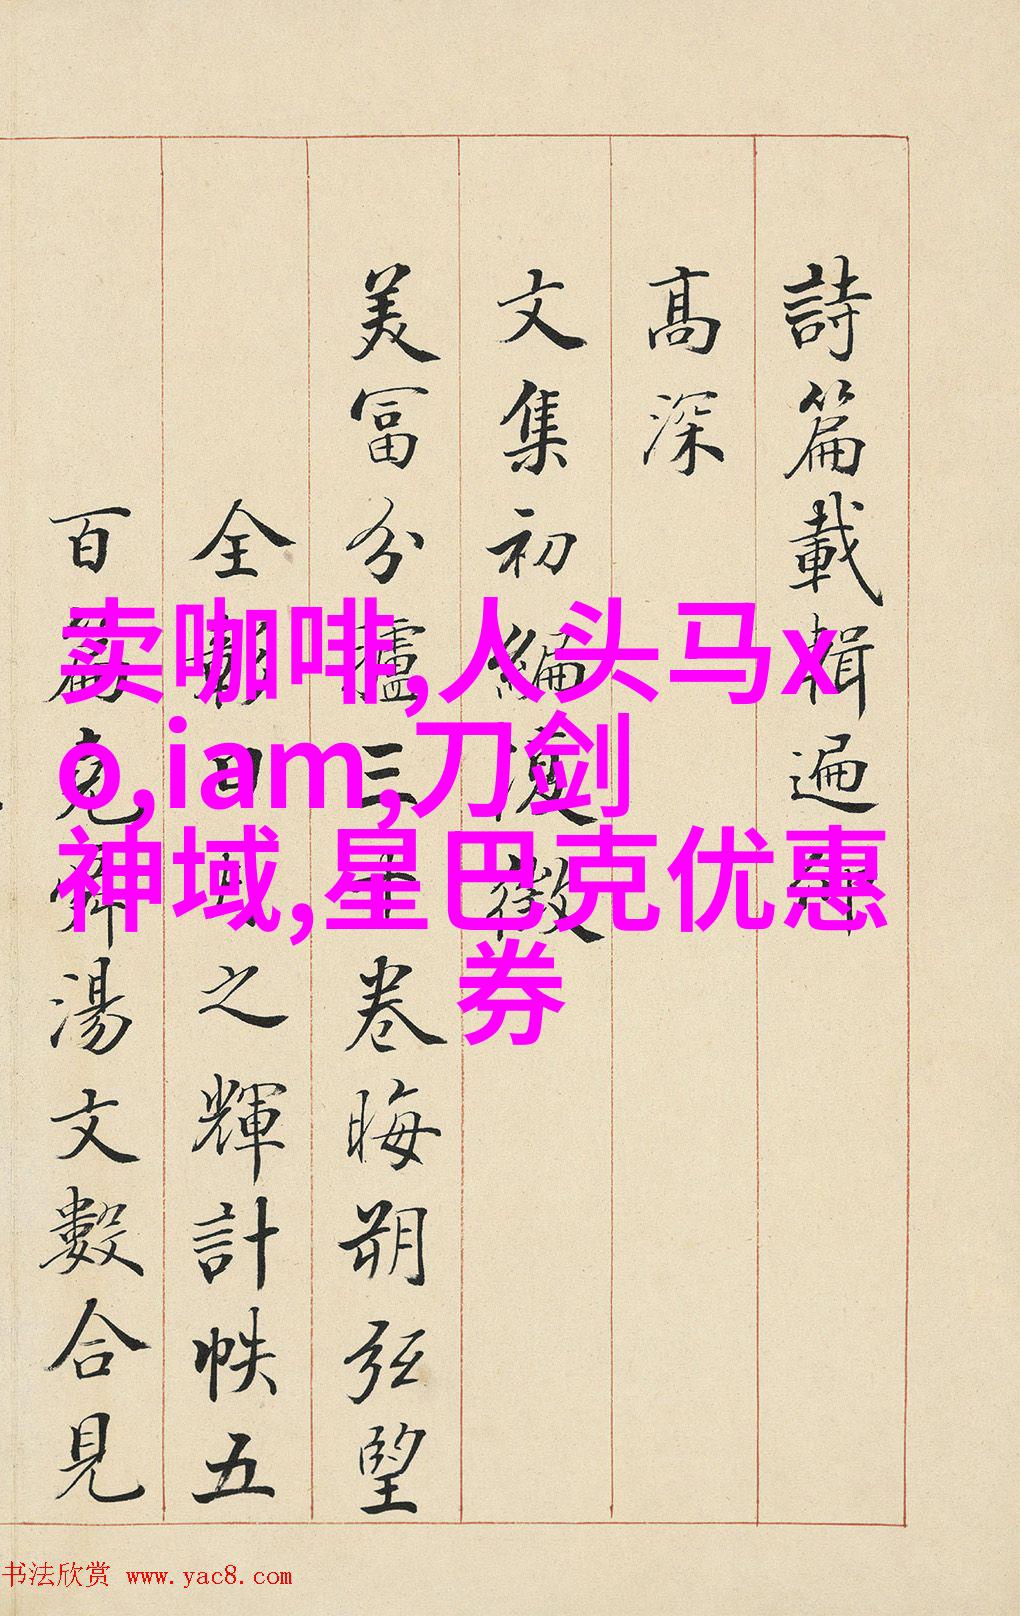 詩篇載輯遍
高深
文集初編
美富分三卷晦朔弦望
全之輝計帙五
百篇湯文數合見
卖咖啡,人头马x
o,iam,刀剑
神域,星巴克优惠
券
书法欣赏 www.yac8.com